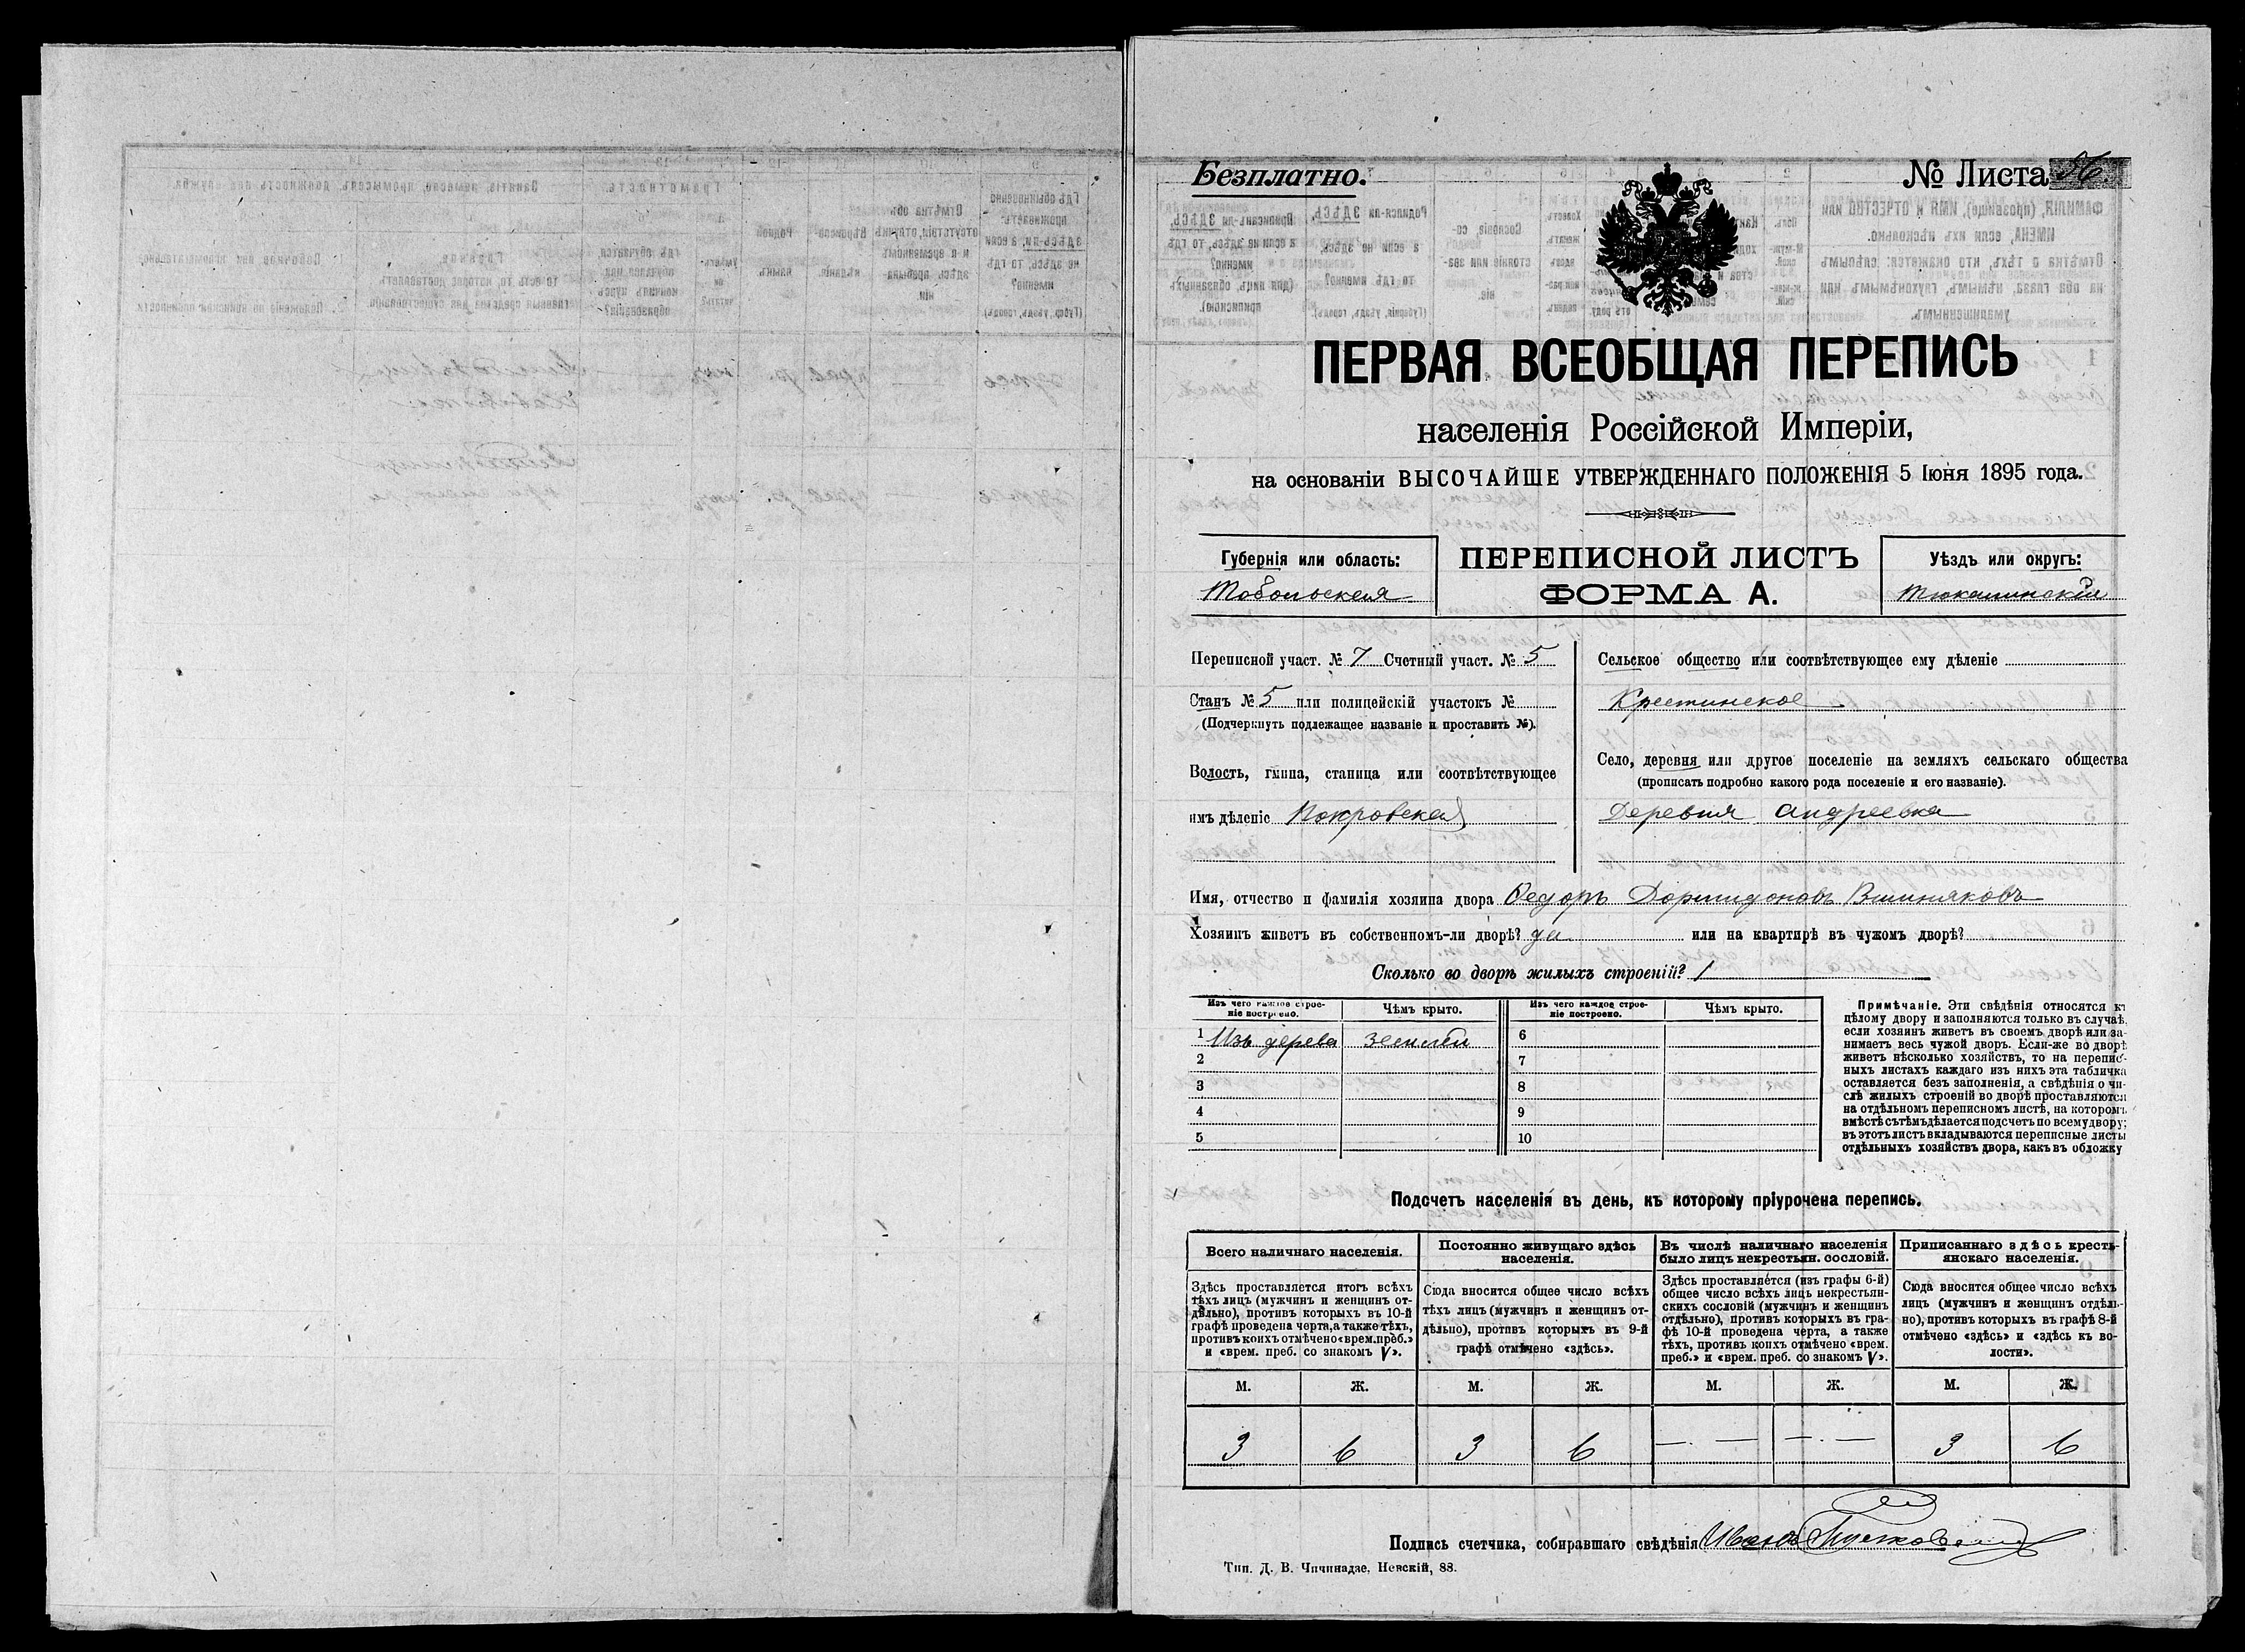 Безплатно.
№ Листа 36
ПЕРВАЯ ВСЕОБЩАЯ ПЕРЕПИСЬ
населенія Россійской Имперіи,
на основаніи ВЫСОЧАЙШЕ УТВЕРЖДЕННАГО ПОЛОЖЕНІЯ 5 Іюня 1895 года.
Губернія или область:
Тобольская
ПЕРЕПИСНОЙ ЛИСТЪ
ФОРМА А.
Уѣздъ или округъ:
Тюкалинскій
Переписной участ. № 7 Счетный участ. № 5
Станъ № 5 или полицейскій участокъ №
(Подчеркнуть подлежащее названіе и проставить №).
Волость, гмина, станица или соотвѣтствующее
имъ дѣленіе Покровская
Сельское общество или соотвѣтствующее ему дѣленіе
Крестинское
Село, деревня или другое поселеніе на земляхъ сельскаго общества
(прописать подробно какого рода поселеніе и его названіе).
Деревня Андреевка
Имя, отчество и фамилія хозяина двора Федоръ Дормидоновъ Вишняковъ
Хозяинъ живетъ въ собственномъ-ли дворѣ? да или на квартирѣ въ чужомъ дворѣ?
Сколько во дворѣ жилыхъ строеній? 1
Изъ чего каждое строе-
ніе построено.
Чѣмъ крыто.
Изъ чего каждое строе-
ніе построено.
Чѣмъ крыто.
1 Изъ дерева землей
2
3
4
5
6
7
8
9
10
Примѣчаніе. Эти свѣдѣнія относятся къ
цѣлому двору и заполняются только въ случаѣ,
если хозяинъ живетъ въ своемъ дворѣ или за-
нимаетъ весь чужой дворъ. Если-же во дворѣ
живетъ нѣсколько хозяйствъ, то на перепис-
ныхъ листахъ каждаго изъ нихъ эта табличка
оставляется безъ заполненія, а свѣдѣнія о чи-
слѣ жилыхъ строеній во дворѣ проставляются
на отдѣльномъ переписномъ листѣ, на которомъ
вмѣстѣ съ тѣмъ дѣлается подсчетъ по всему двору;
въ этотъ листъ вкладываются переписные листы
отдѣльныхъ хозяйствъ двора, какъ въ обложку
Подсчетъ населенія въ день, къ которому пріурочена перепись.
Всего наличнаго населенія.
Здѣсь проставляется итогъ всѣхъ
тѣхъ лицъ (мужчинъ и женщинъ от-
дѣльно), противъ которыхъ въ 10-й
графѣ проведена черта, а также тѣхъ,
противъ коихъ отмѣчено «врем. преб.»
и «врем. преб. со знакомъ V».
Постоянно живущаго здѣсь
населенія.
Сюда вносится общее число всѣхъ
тѣхъ лицъ (мужчинъ и женщинъ от-
дѣльно), противъ которыхъ въ 9-й
графѣ отмѣчено «здѣсь».
Въ числѣ наличнаго населенія
было лицъ некрестьян. сословій.
Здѣсь проставляется (изъ графы 6-й)
общее число всѣхъ лицъ некрестьян-
скихъ сословій (мужчинъ и женщинъ
отдѣльно), противъ которыхъ въ гра-
фѣ 10-й проведена черта, а также
тѣхъ, противъ коихъ отмѣчено «врем.
преб.» и «врем. преб. со знакомъ V».
Приписаннаго здѣсь кресть-
янскаго населенія.
Сюда вносится общее число всѣхъ
лицъ (мужчинъ и женщинъ отдѣль-
но), противъ которыхъ въ графѣ 8-й
отмѣчено «здѣсь» и «здѣсь къ во-
лости».
М. Ж. М. Ж. М. Ж. М. Ж.
3 6 3 6 — . — — . — 3 6
Подпись счетчика, собиравшаго свѣдѣнія Иванъ
Тип. Д. В. Чичинадзе, Невскій, 88.